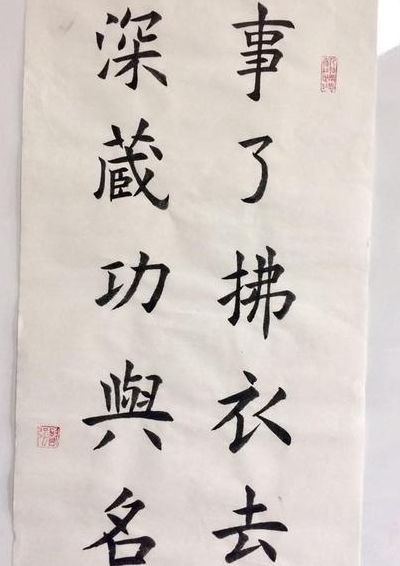 事了拂衣去
深蔵功與名